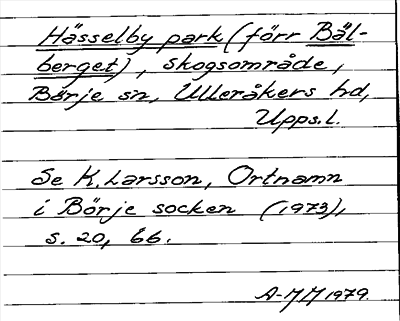 Hässelby park (förr Bäl-
berget), skogsområde,
Börje sn, Ulleråkers hd,
Upps.l.
Se K. Larsson, Ortnamn
i Börje socken (1973),
s. 20, 66.
A-MM 1979.